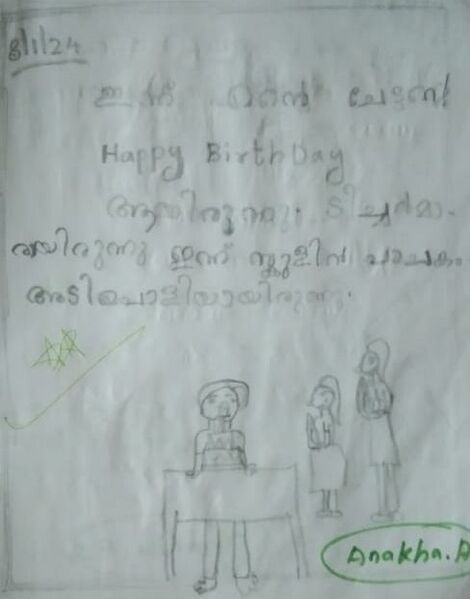 8/1/24
ഇന്ന് എന്റെ ചേട്ടന്റെ
Happy BirthDay
ആയിരുന്നു. ടീച്ചർമാ-
രായിരുന്നു ഇന്ന് സ്കൂളിൻ പാചകം
അടിപൊളിയായിരുന്നു.
Anakha.A